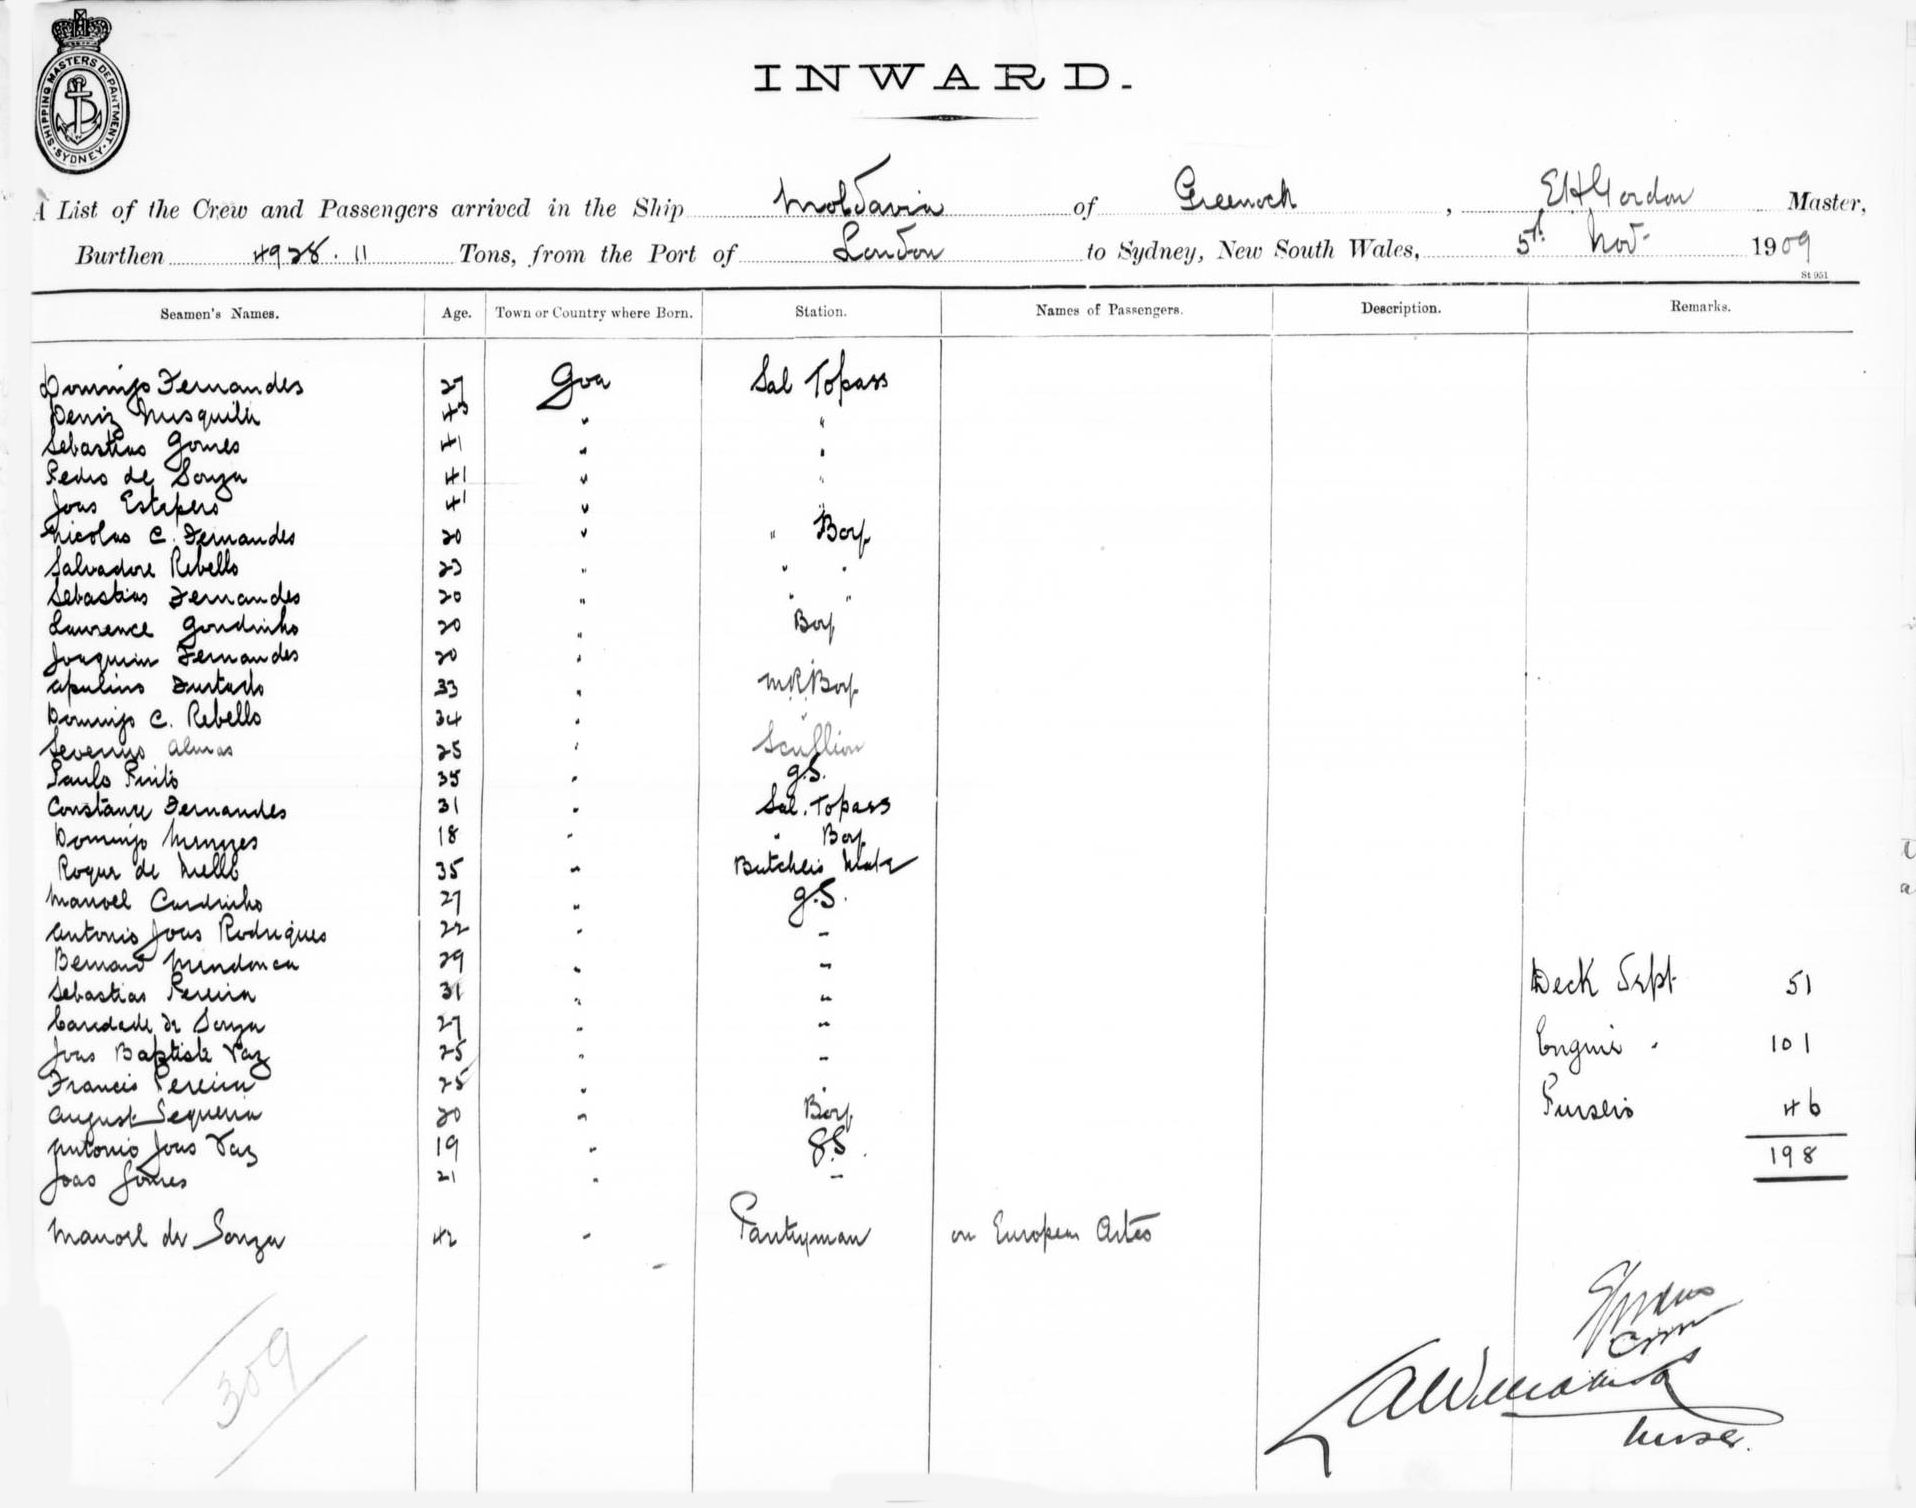 SHIPPING MASTERS DEPARTMENT. SYDNEY.
INWARD.
A List of the Crew and Passengers arrived in the Ship Moldavia of Greenock, E H Gordon Master,
Burthen 4928.11 Tons, from the Port of London to Sydney, New South Wales, 5th Nov 1909
St 951
Seamen's Names. Age. Town or Country where Born. Station. Names of Passengers. Description. Remarks.
Domingo Fernandes 27 Goa Sal Topass
Deniz Musquita 43 " "
Sebastiao Gomes 41 " "
Pedro de Souza 41 " "
Joao Estepero 41 "
Nicolas C. Fernandes 20 " " Boy
Salvadore Rebello 23 " " "
Sebastiao Fernandes 20 " " "
Laurence Goudinho 20 " Boy
Joaquim Fernandes 20 " "
Apulino Furtado 33 " M R Boy
Domingo C. Rebello 34 " "
Severino 25 " Scullion
Paulo Pinto 35 " G.S.
Constance Fernandes 31 " Sal. Topass
Domingo Menezes 18 " " Boy
Roque de Mello 35 " Butchers Mate
Manoel Cardinho 27 " G.S.
Antonio Joao Rodrigues 22 " "
Bernard Mendonca 29 " "
Sebastiao Pereira 31 " " Deck Dept 51
Caridade de Souza 27 " "
Joao Baptiste Vaz 25 " " Engine " 101
Francis Pereira 25 " "
August Sequeria 20 " Boy Pursers 46
Antonio Joao Vaz 19 " G.S. 198
Joao Gomes 21 " "
Manoel de Souza 42 " Pantryman on European Artes
309
Purser.